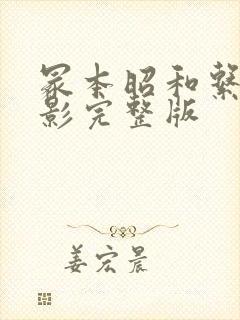 冢本昭和繁
影完整版
姜宏晨